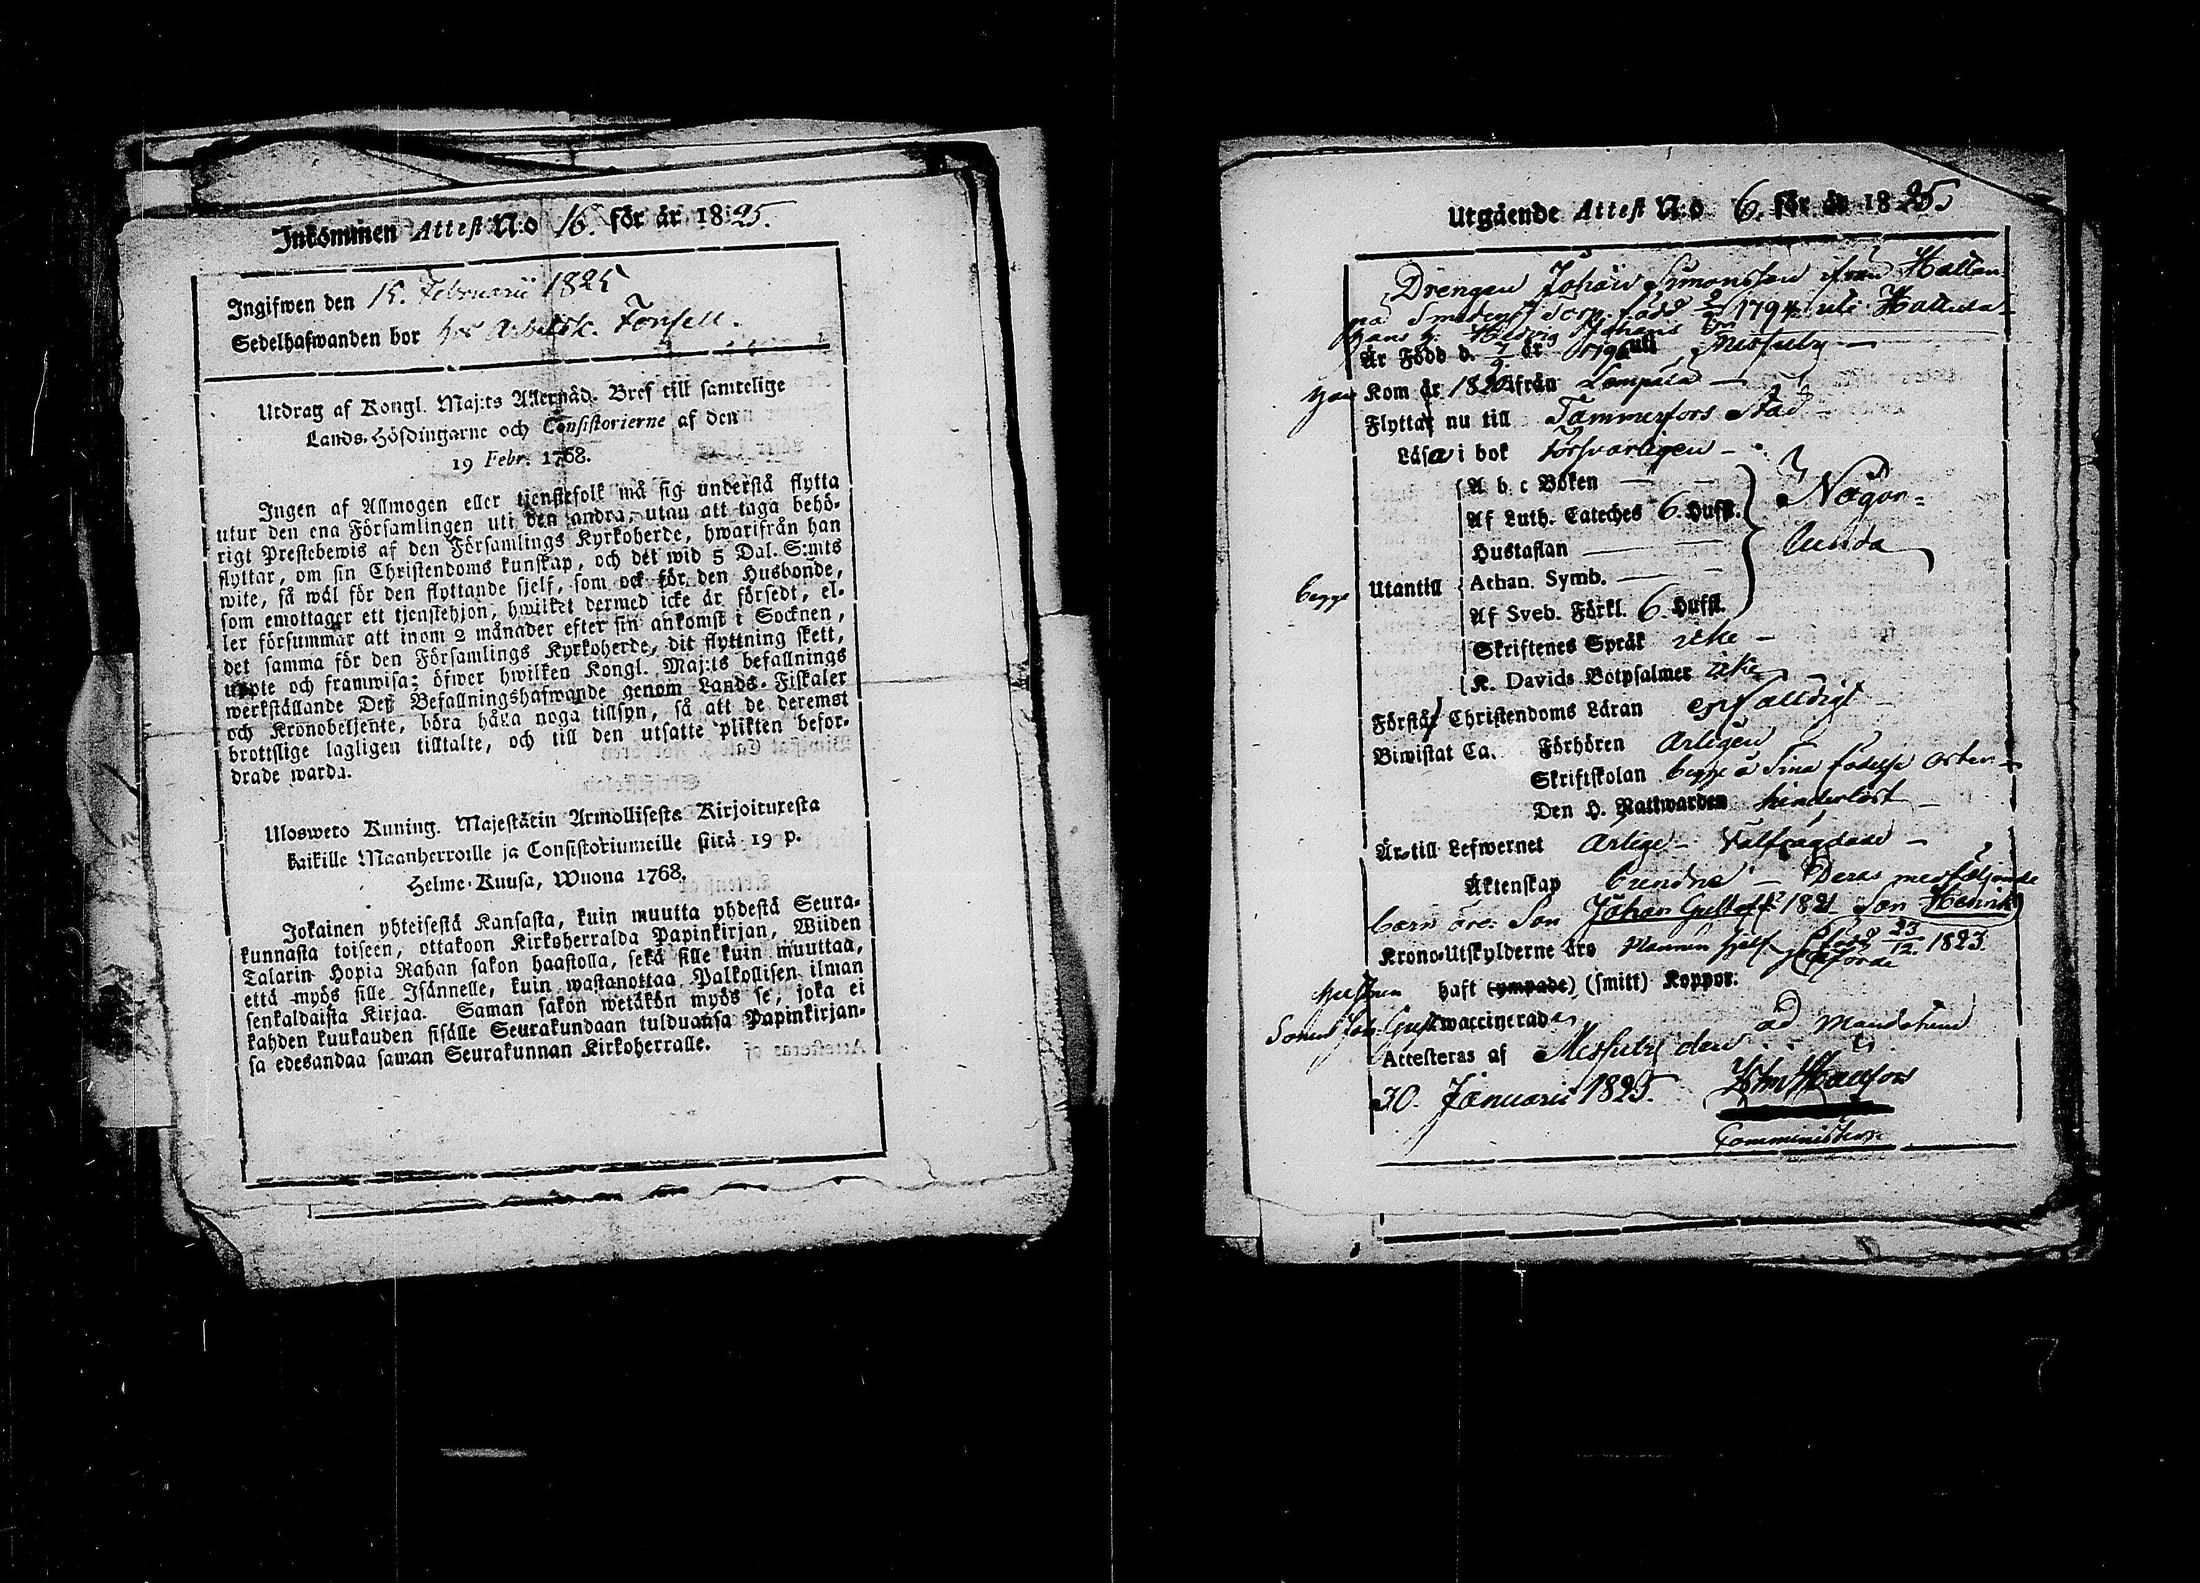 Inkommen Attest N:o 16. för år 1825.
Ingifwen den 15. Februarii 1825
Sedelhafwanden bor hos Arbetsk. Fonsell.
Utdrag af Kongl. Maj:ts Allernåd. Bref till samtelige
Lands-Höfdingarne och Consistorierne af den
19 Febr. 1768.
Ingen af Allmogen eller tjenstefolk må sig understå flytta
utur den ena Församlingen uti den andra, utan att taga behö-
rigt Prestebewis af den Församlings Kyrkoherde, hwarifrån han
flyttar, om sin Christendoms kunskap, och det wid 5 Dal. S:mts
wite, så wäl för den flyttande sjelf, som ock för den Husbonde,
som emottager ett tjenstehjon, hwilket dermed icke är försedt, el-
ler försummar att inom 2 månader efter sin ankomst i Socknen,
det samma för den Församlings Kyrkoherde, dit flyttning skett,
uppte och framwisa; öfwer hwilken Kongl. Maj:ts befallnings
werkställande Deß Befallningshafwande genom Lands-Fiskaler
och Kronobetjente, böra hålla noga tillsyn, så att de deremot
brottslige lagligen tilltalte, och till den utsatte plikten befor-
drade warda.
Ulosweto Kuning. Majestätin Armollisesta Kirjoituresta
kaikille Maanherroille ja Consistoriumeille siitä 19 p.
Helme-Kuusa, Wuona 1768.
Jokainen yhteisestä Kansasta, kuin muutta yhdestä Seura-
kunnasta toiseen, ottakoon Kirkoherralda Papinkirjan, Wiiden
Talarin Hopia Rahan sakon haastolla, sekä sille kuin muuttaa,
että myös sille Isännelle, kuin wastanottaa Palkollisen ilman
senkaldaista Kirjaa. Saman sakon wetäkön myös se, joka ei
kahden kuukauden sisälle Seurakundaan tulduansa Papinkirjan-
sa edesandaa saman Seurakunnan Kirkoherralle.
Utgående Attest N:o 6. för år 1825.
Drengen Johan Simonsson ifrån Hattan-
pä Smedens Torp. född 2/2 1794 uti Hattula
Hans h. Hedvig Johans Dr
Är Född d. 7/9 år 1796 uti Messuby
Kom år 1820 ifrån Lempälä
Flyttar nu till Tammerfors Stad
Läsa i bok försvarligen
A b c Boken
Af Luth. Cateches 6. Hufst. Någor-
Hustaflan lunda
begge Utantill Athan. Symb.
Af Sveb. Förkl. 6. Hufst.
Skriftenes Språk icke
K. Davids Botpsalmer icke
Förstår Christendoms Läran enfalldigt
Biwistat Ca. Förhören Årligen
Skriftskolan begge å Sina födelse Orter
Den H. Nattwarden hinderlöst
Äro till Lefwernet Ärlige Välfrägdade
Äktenskap bundne Deras medföljande
barn äro: Son Johan Gustaf f. 1821 Son Henrik
Krono-Utskylderne äro Mannen sjelf född 23/12 1823.
Hustrun haft (ympade) (smitt) Koppor.
Sonen Joh. Gust waccinerad
Attesteras af Messuby den ad Mandatum
30. Januarii 1825.
Comminister